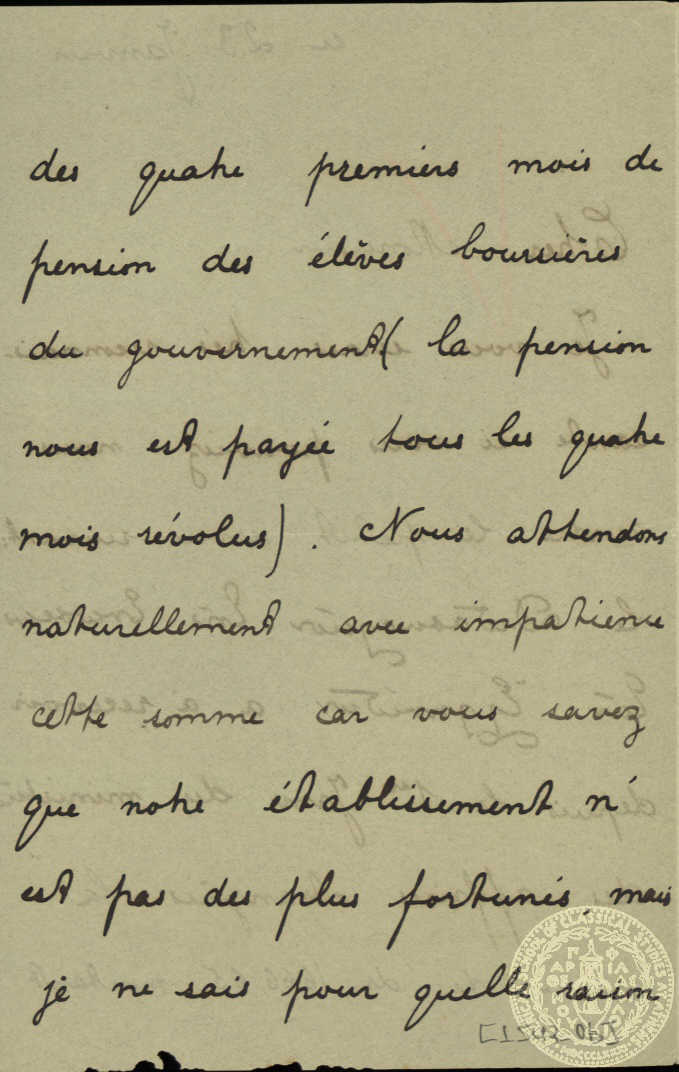 des quatre premiers mois de
pension des élèves boursières
du gouvernement (la pension
nous est payée tous les quatre
mois révolus). Nous attendons
naturellement avec impatience
cette somme car vous savez
que notre établissement n'
est pas des plus fortunés, mais
je ne sais pour quelle raison